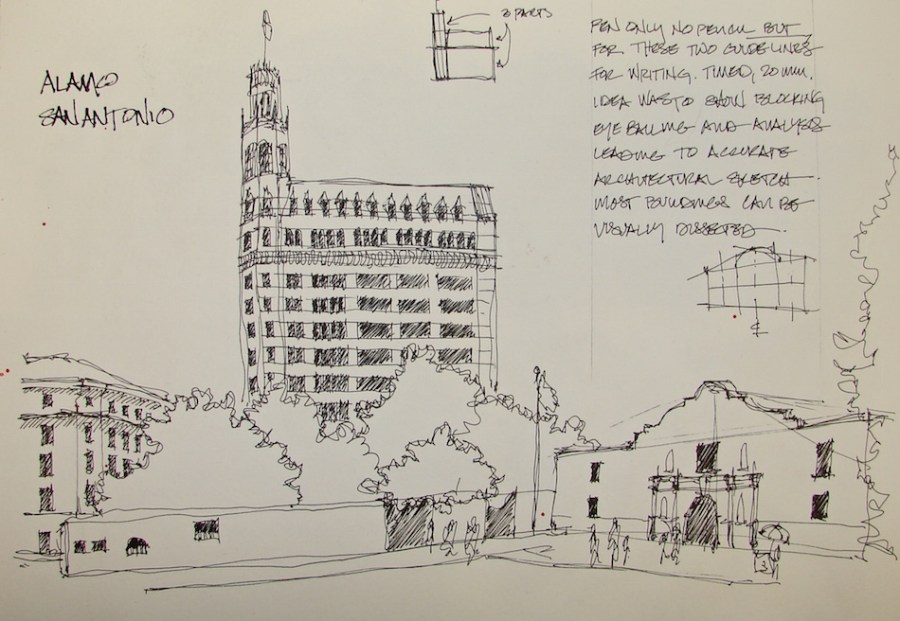 ALAMO
SAN ANTONIO
2 PARTS
PEN ONLY NO PENCIL BUT
FOR THESE TWO GUIDELINES
FOR WRITING. TIMED, 20 MIN.
IDEA WAS TO SHOW BLOCKING
EYEBALLING AND ANALYSIS
LEADING TO ACCURATE
ARCHITECTURAL SKETCH.
MOST BUILDINGS CAN BE
VISUALLY DISSECTED.